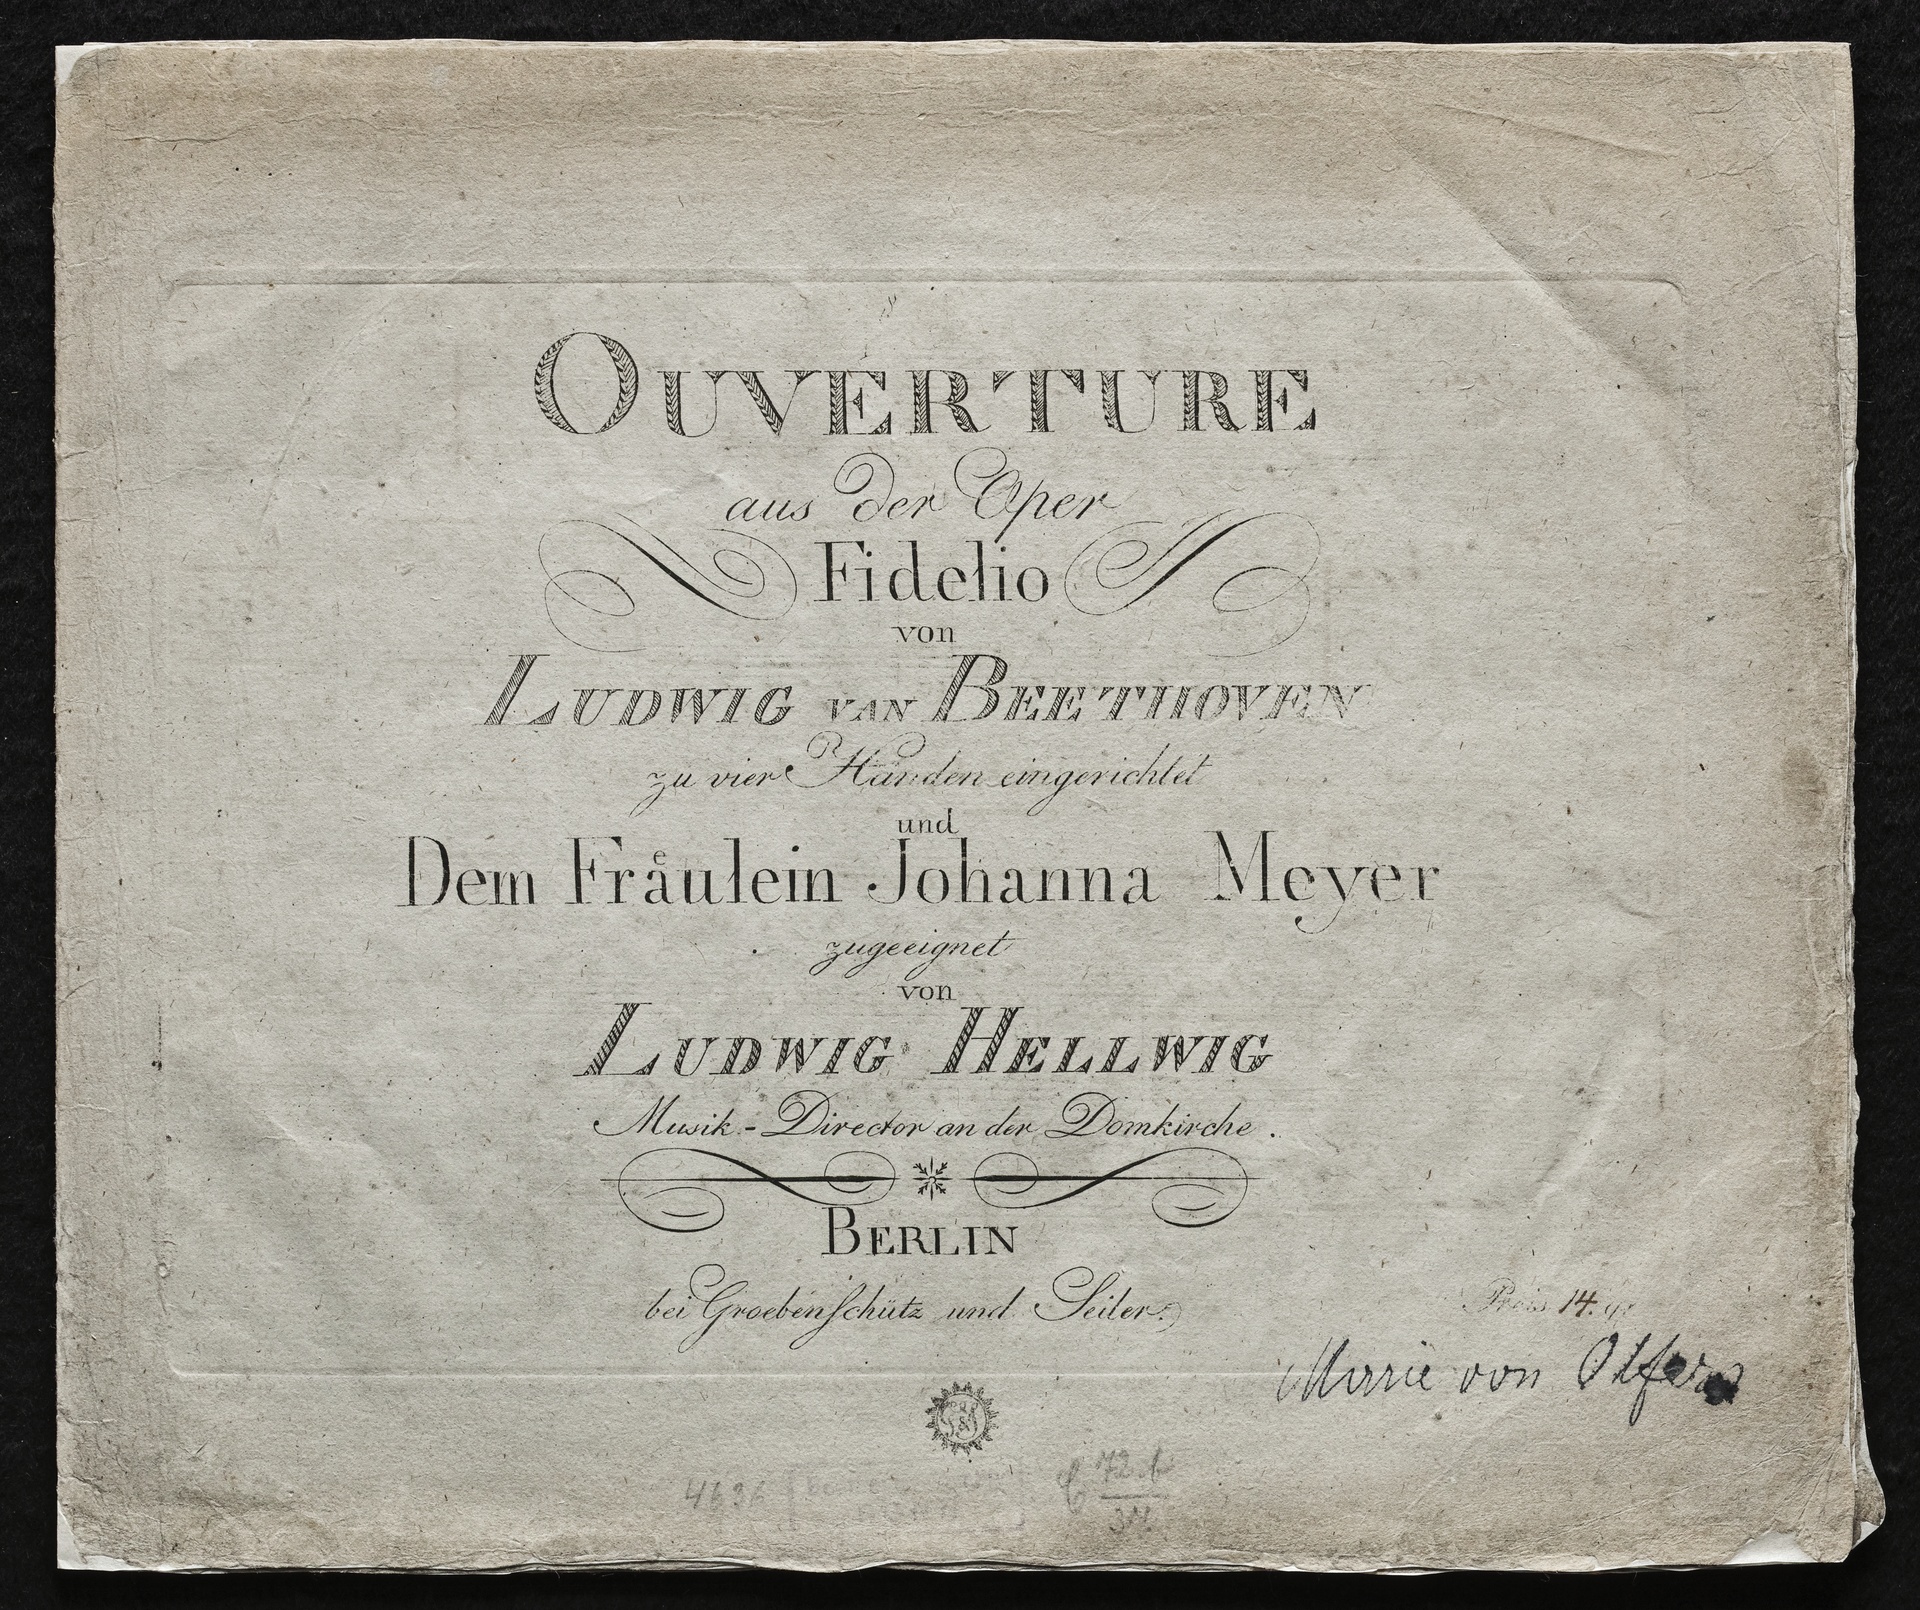 OUVERTURE
aus der Oper
Fidelio
von
LUDWIG VAN BEETHOVEN
zu vier Händen eingerichtet
und
Dem Fraͤulein Johanna Meyer
zugeeignet
von
LUDWIG HELLWIG
Musik-Director an der Domkirche.
BERLIN
bei Groebenschütz und Seiler.
Preis 14. gr
Marie von Olfers
G & S
4636